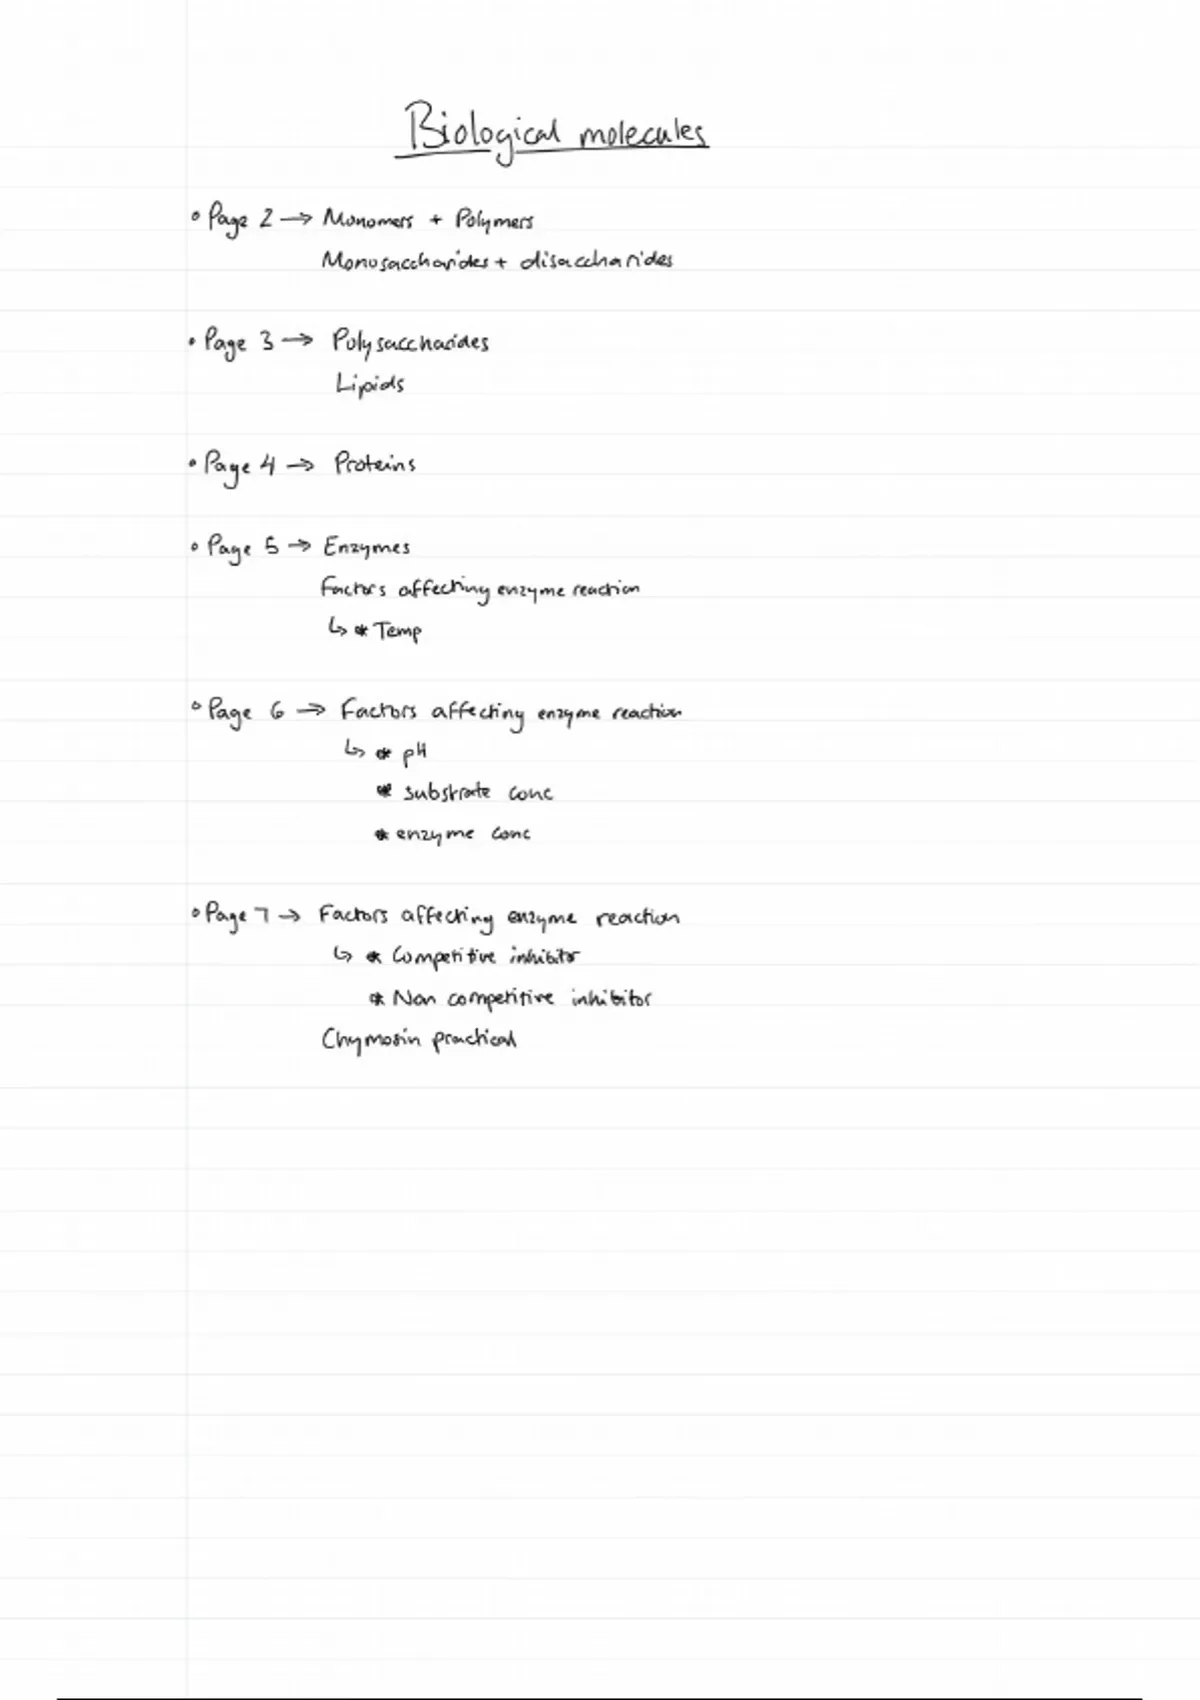 Biological molecules
• Page 2 → Monomers + Polymers
Monosaccharides + disaccharides
• Page 3 → Polysaccharides
Lipids
• Page 4 → Proteins
• Page 5 → Enzymes
Factors affecting enzyme reaction
↳ * Temp
• Page 6 → Factors affecting enzyme reaction
↳ * pH
* substrate conc
* enzyme conc
• Page 7 → Factors affecting enzyme reaction
↳ * Competitive inhibitor
* Non competitive inhibitor
Chymosin practical